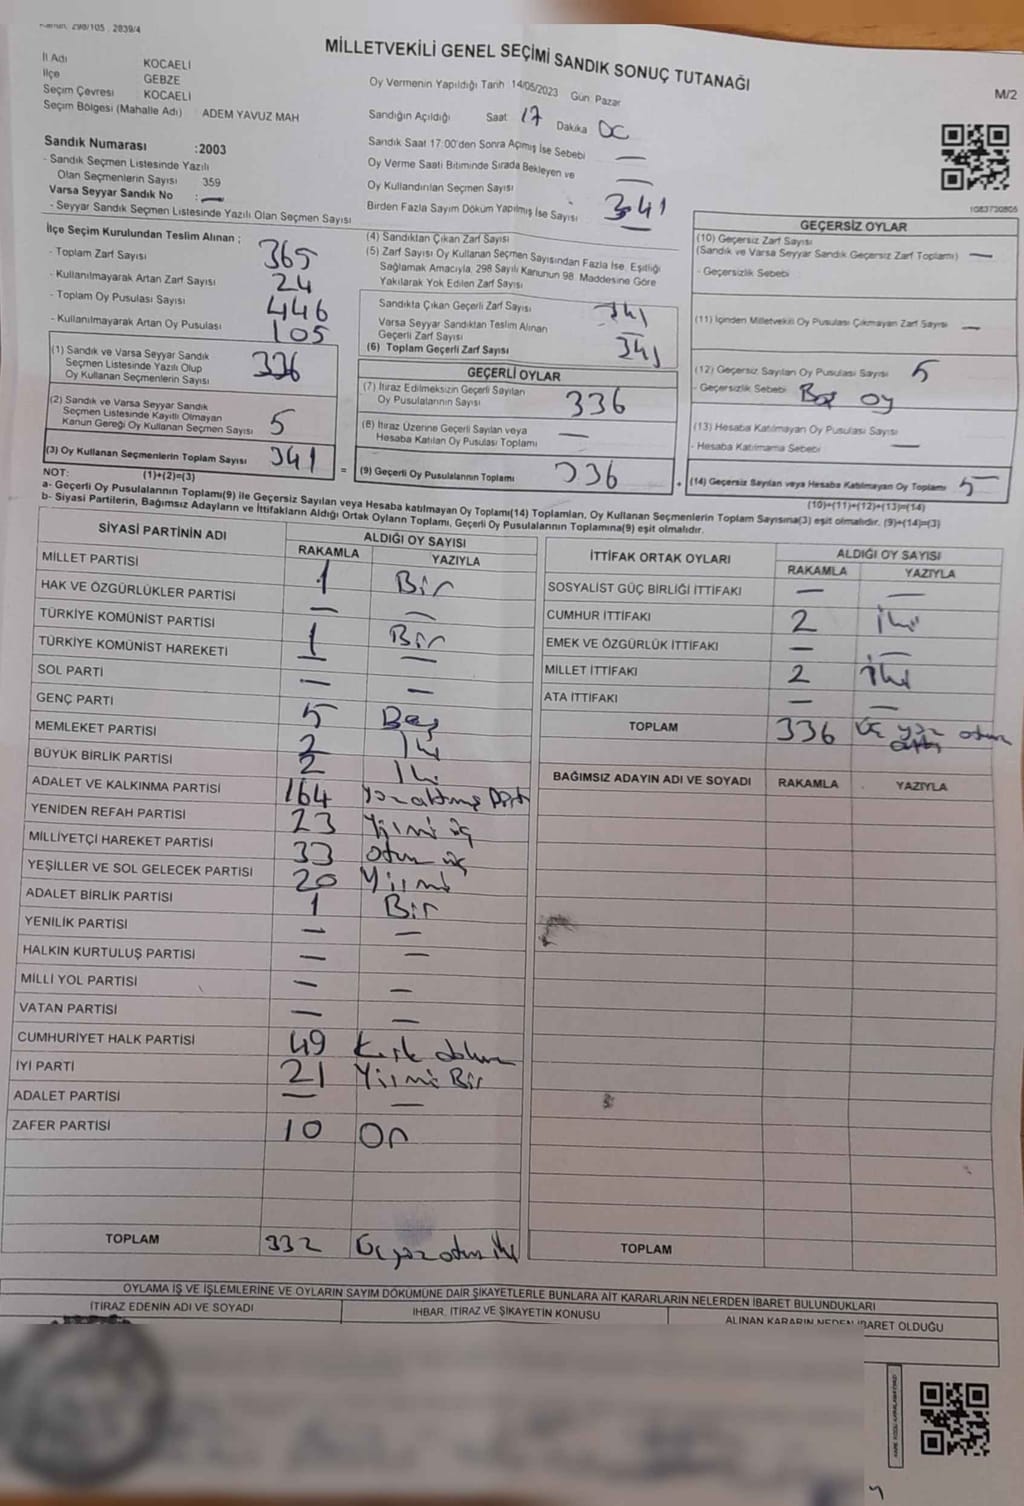 Kanun: 298/105 , 2839/4
MİLLETVEKİLİ GENEL SEÇİMİ SANDIK SONUÇ TUTANAĞI
M/2
İl Adı KOCAELİ
İlçe GEBZE
Seçim Çevresi KOCAELİ
Seçim Bölgesi (Mahalle Adı) ADEM YAVUZ MAH
Sandık Numarası :2003
- Sandık Seçmen Listesinde Yazılı
Olan Seçmenlerin Sayısı 359
Varsa Seyyar Sandık No : —
- Seyyar Sandık Seçmen Listesinde Yazılı Olan Seçmen Sayısı
Oy Vermenin Yapıldığı Tarih 14/05/2023 Gün Pazar
Sandığın Açıldığı Saat 17 Dakika
Sandık Saat 17:00'den Sonra Açımış İse Sebebi —
Oy Verme Saati Bitiminde Sırada Bekleyen ve
Oy Kullandırılan Seçmen Sayısı —
Birden Fazla Sayım Döküm Yapılmış İse Sayısı —
341
1083730805
İlçe Seçim Kurulundan Teslim Alınan ;
- Toplam Zarf Sayısı 365
- Kullanılmayarak Artan Zarf Sayısı 24
- Toplam Oy Pusulası Sayısı 446
- Kullanılmayarak Artan Oy Pusulası 105
(1) Sandık ve Varsa Seyyar Sandık
Seçmen Listesinde Yazılı Olup
Oy Kullanan Seçmenlerin Sayısı 336
(2) Sandık ve Varsa Seyyar Sandık
Seçmen Listesinde Kayıtlı Olmayan
Kanun Gereği Oy Kullanan Seçmen Sayısı 5
(3) Oy Kullanan Seçmenlerin Toplam Sayısı 341
(4) Sandıktan Çıkan Zarf Sayısı
(5) Zarf Sayısı Oy Kullanan Seçmen Sayısından Fazla İse, Eşitliği
Sağlamak Amacıyla, 298 Sayılı Kanunun 98. Maddesine Göre
Yakılarak Yok Edilen Zarf Sayısı
Sandıkta Çıkan Geçerli Zarf Sayısı 341
Varsa Seyyar Sandıktan Teslim Alınan
Geçerli Zarf Sayısı —
(6) Toplam Geçerli Zarf Sayısı 341
GEÇERLİ OYLAR
(7) İtiraz Edilmeksizin Geçerli Sayılan
Oy Pusulalarının Sayısı 336
(8) İtiraz Üzerine Geçerli Sayılan veya
Hesaba Katılan Oy Pusulası Toplamı —
= (9) Geçerli Oy Pusulalarının Toplamı 336
GEÇERSİZ OYLAR
(10) Geçersiz Zarf Sayısı
(Sandık ve Varsa Seyyar Sandık Geçersiz Zarf Toplamı) —
- Geçersizlik Sebebi
(11) İçinden Milletvekili Oy Pusulası Çıkmayan Zarf Sayısı —
(12) Geçersiz Sayılan Oy Pusulası Sayısı 5
- Geçersizlik Sebebi Boş oy
(13) Hesaba Katılmayan Oy Pusulası Sayısı
- Hesaba Katılmama Sebebi —
+ (14) Geçersiz Sayılan veya Hesaba Katılmayan Oy Toplamı 5
NOT: (1)+(2)=(3)
(10)+(11)+(12)+(13)=(14)
a- Geçerli Oy Pusulalarının Toplamı(9) ile Geçersiz Sayılan veya Hesaba katılmayan Oy Toplamı(14) Toplamları, Oy Kullanan Seçmenlerin Toplam Sayısına(3) eşit olmalıdır. (9)+(14)=(3)
b- Siyasi Partilerin, Bağımsız Adayların ve İttifakların Aldığı Ortak Oyların Toplamı, Geçerli Oy Pusulalarının Toplamına(9) eşit olmalıdır.
SİYASİ PARTİNİN ADI ALDIĞI OY SAYISI
RAKAMLA YAZIYLA
MİLLET PARTİSİ 1 Bir
HAK VE ÖZGÜRLÜKLER PARTİSİ — —
TÜRKİYE KOMÜNİST PARTİSİ 1 Bir
TÜRKİYE KOMÜNİST HAREKETİ — —
SOL PARTİ — —
GENÇ PARTİ 5 Beş
MEMLEKET PARTİSİ 2 İki
BÜYÜK BİRLİK PARTİSİ 2 İki
ADALET VE KALKINMA PARTİSİ 164 Yüz altmış Dört
YENİDEN REFAH PARTİSİ 23 Yirmi üç
MİLLİYETÇİ HAREKET PARTİSİ 33 otuz üç
YEŞİLLER VE SOL GELECEK PARTİSİ 20 Yirmi
ADALET BİRLİK PARTİSİ 1 Bir
YENİLİK PARTİSİ — —
HALKIN KURTULUŞ PARTİSİ — —
MİLLİ YOL PARTİSİ — —
VATAN PARTİSİ — —
CUMHURİYET HALK PARTİSİ 49 Kırk dokuz
İYİ PARTİ 21 Yirmi Bir
ADALET PARTİSİ — —
ZAFER PARTİSİ 10 On
TOPLAM 332 Üç yüz otuz iki
İTTİFAK ORTAK OYLARI ALDIĞI OY SAYISI
RAKAMLA YAZIYLA
SOSYALİST GÜÇ BİRLİĞİ İTTİFAKI — —
CUMHUR İTTİFAKI 2 İki
EMEK VE ÖZGÜRLÜK İTTİFAKI — —
MİLLET İTTİFAKI 2 İki
ATA İTTİFAKI — —
TOPLAM 336 Üç yüz otuz altı
BAĞIMSIZ ADAYIN ADI VE SOYADI RAKAMLA YAZIYLA
TOPLAM
OYLAMA İŞ VE İŞLEMLERİNE VE OYLARIN SAYIM DÖKÜMÜNE DAİR ŞİKAYETLERLE BUNLARA AİT KARARLARIN NELERDEN İBARET BULUNDUKLARI
İTİRAZ EDENİN ADI VE SOYADI İHBAR, İTİRAZ VE ŞİKAYETİN KONUSU ALINAN KARARIN NEDEN İBARET OLDUĞU